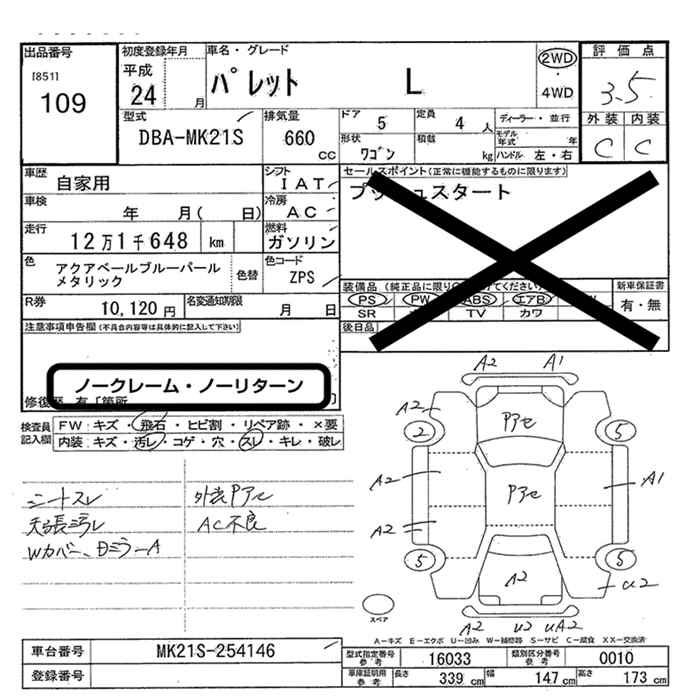 出品番号
[851]
109
初度登録年月
平成
24 月
車名・グレード
パレット L
2WD
・
4WD
評価点
3.5
外装 内装
C C
型式
DBA-MK21S
排気量
660
CC
ドア 5
定員 4 人
形状
ワゴン
積載
kg
ディーラー・並行
モデル年式 年
ハンドル 左・右
車歴
自家用
シフト
IAT
車検
年 月( 日)
冷房
AC
走行
12万1千648 km
燃料
ガソリン
色
アクアベールブルーパール
メタリック
色替
色コード
ZPS
R券
10,120円
名変通知期限
月 日
セールスポイント(正常に機能するものに限ります)
プッシュスタート
装備品(純正品に限り
てください)
PS PW ABS エアB W
SR TV カワ
新車保証書
有・無
後日品
注意事項申告欄(不具合内容等は具体的に記入して下さい)
ノークレーム・ノーリターン
修復歴 有「箇所
検査員
記入欄
FW:キズ・飛石・ヒビ割・リペア跡・×要
内装:キズ・汚レ・コゲ・穴・スレ・キレ・破レ
シートスレ
天張ヨゴレ
Wカバー、Dミラー A
外装Pアセ
AC不良
A2 A1
A2
Pアセ
2 5
A2
Pアセ
A1
A2
5 5
A2
U2
A2 U2 UA2
スペア
A-キズ E-エクボ U-凹み W-補修跡 S-サビ C-腐食 XX-交換済
車台番号
MK21S-254146
登録番号
型式指定番号
参考
16033
類別区分番号
参考
0010
車庫証明用
参考
長さ
339 cm
幅
147 cm
高さ
173 cm